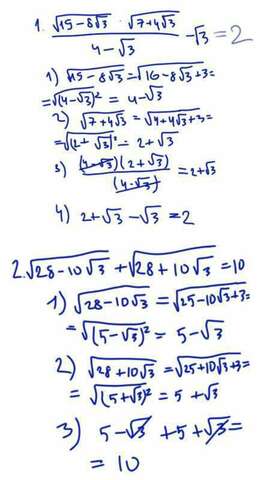 1. √(15-8√3) · √(7+4√3) / (4-√3) - √3 = 2
1) √(15-8√3) = √(16-8√3+3) =
= √(4-√3)² = 4-√3
2) √(7+4√3) = √(4+4√3+3) =
= √(2+√3)² = 2+√3
3) (4-√3)(2+√3) / (4-√3) = 2+√3
4) 2+√3 - √3 = 2
2. √(28-10√3) + √(28+10√3) = 10
1) √(28-10√3) = √(25-10√3+3) =
= √(5-√3)² = 5-√3
2) √(28+10√3) = √(25+10√3+3) =
= √(5+√3)² = 5+√3
3) 5-√3 +5+√3 =
= 10